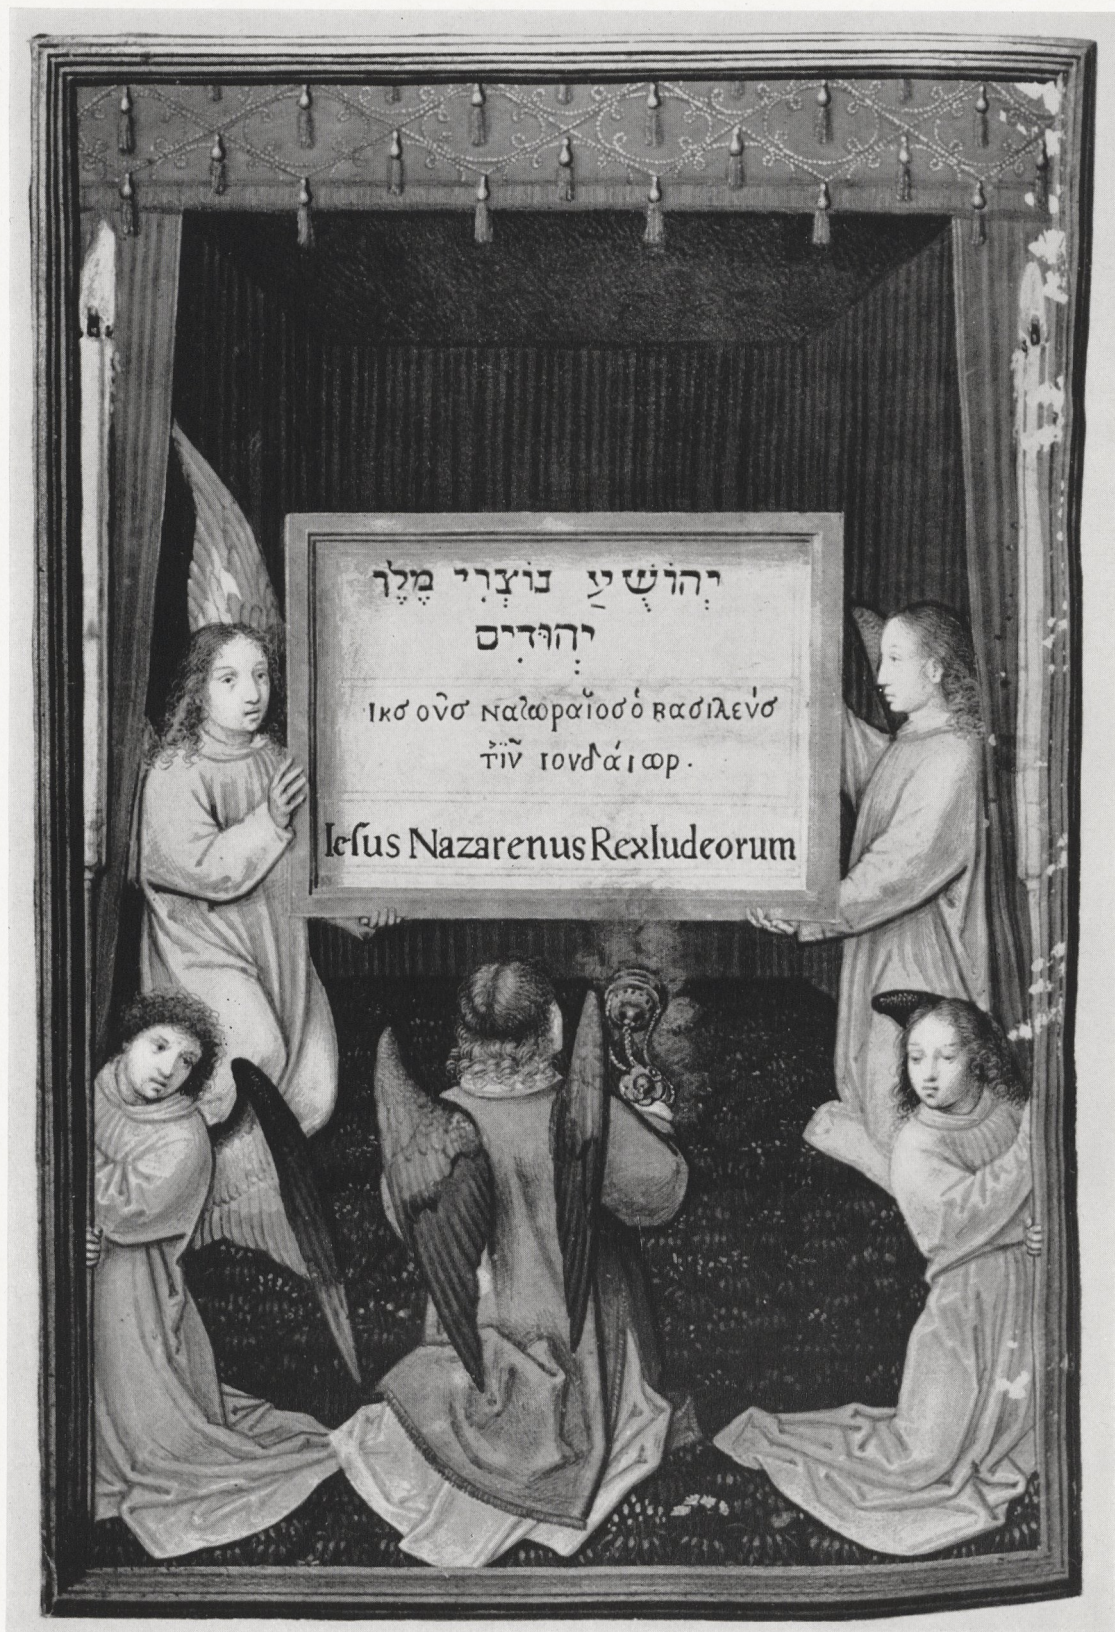 יְהוֹשֻׁעַ נוֹצְרִי מֶלֶך
יְהוּדִים
ικσ ουσ ναζωραῖοσ ὁ βασιλεύσ
τῖν ιουδάιωρ.
Iesus Nazarenus Rex Iudeorum